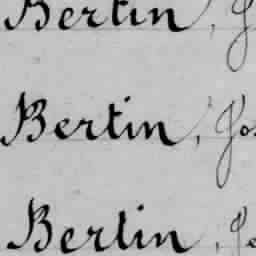 Bertin, J
Bertin, Jos
Bertin, Je